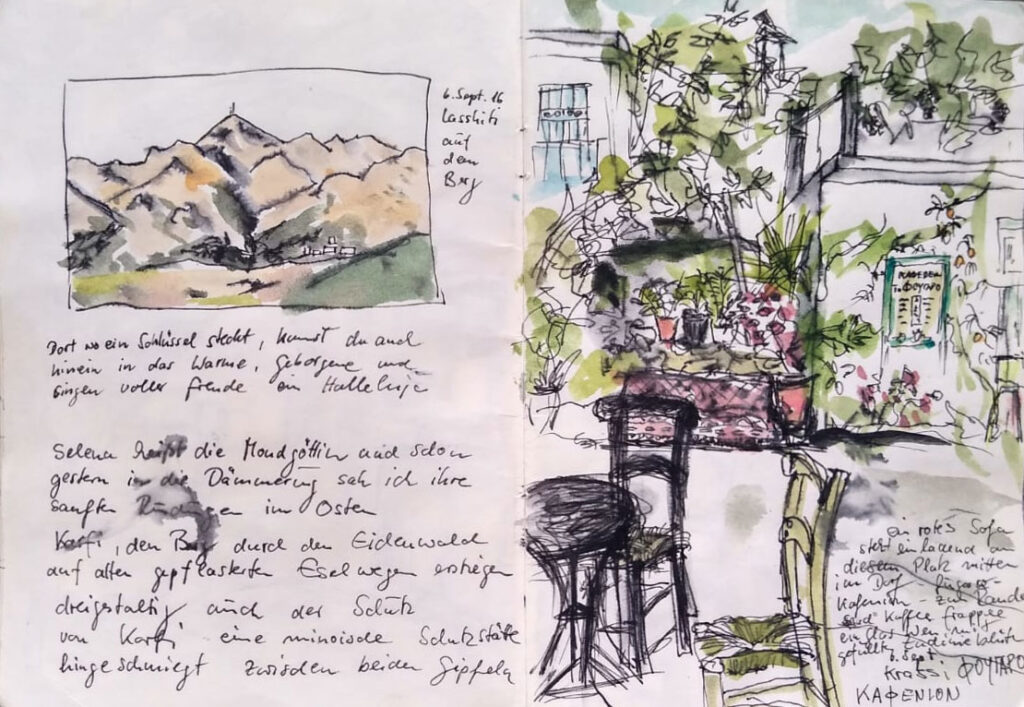 6. Sept. 16
Lassithi
auf
dem
Berg
Dort wo ein Schlüssel steckt, kannst du auch
hinein in das Warme, Geborgene und
singen voller Freude ein Halleluja
Selena heißt die Mondgöttin und schon
gestern in die Dämmerung sah ich ihre
sanften im Osten
Karfi, den Berg durch den Eichenwald
auf alten gepflasterten Eselwegen erstiegen
dreigestaltig auch der Schutz
von Karfi eine minoische Schutzstätte
hingeschmiegt zwischen beiden Gipfeln
ΚΑΦΕΝΕΙΟΝ
Το ΦΟΥΓΑΡΟ
ein rotes Sofa
steht einladend an
diesem Platz mitten
im Dorf
Kafenion - zum Rande
Kaffee frappee
ein Glas Wein mit
gefüllte
6. Sept.
Krassi ΦΟΥΓΑΡΟ
ΚΑΦΕΝΙΟΝ